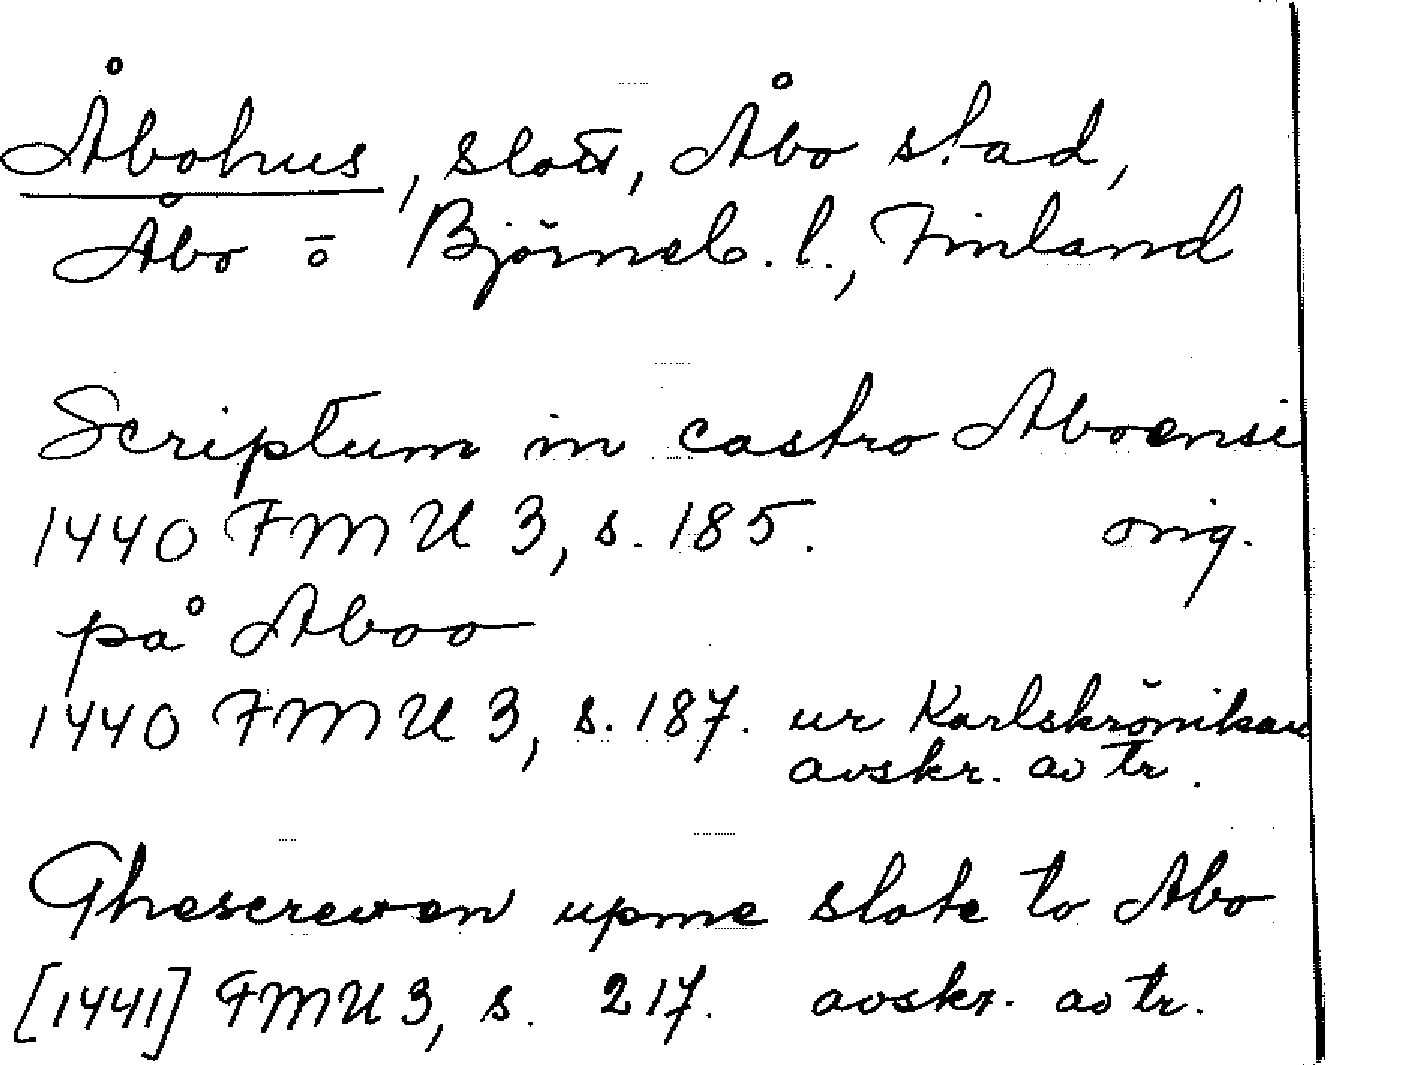 Åbohus, slott, Åbo stad,
Åbo o Björneb. l., Finland
Scriptum in castro Aboensi
1440 FMU 3, s. 185. orig.
på Aboo
1440 FMU 3, s. 187. ur Karlskrönikan
avskr. av tr.
Ghescreven upme slote to Abo
[1441] FMU 3, s. 217. avskr. av tr.